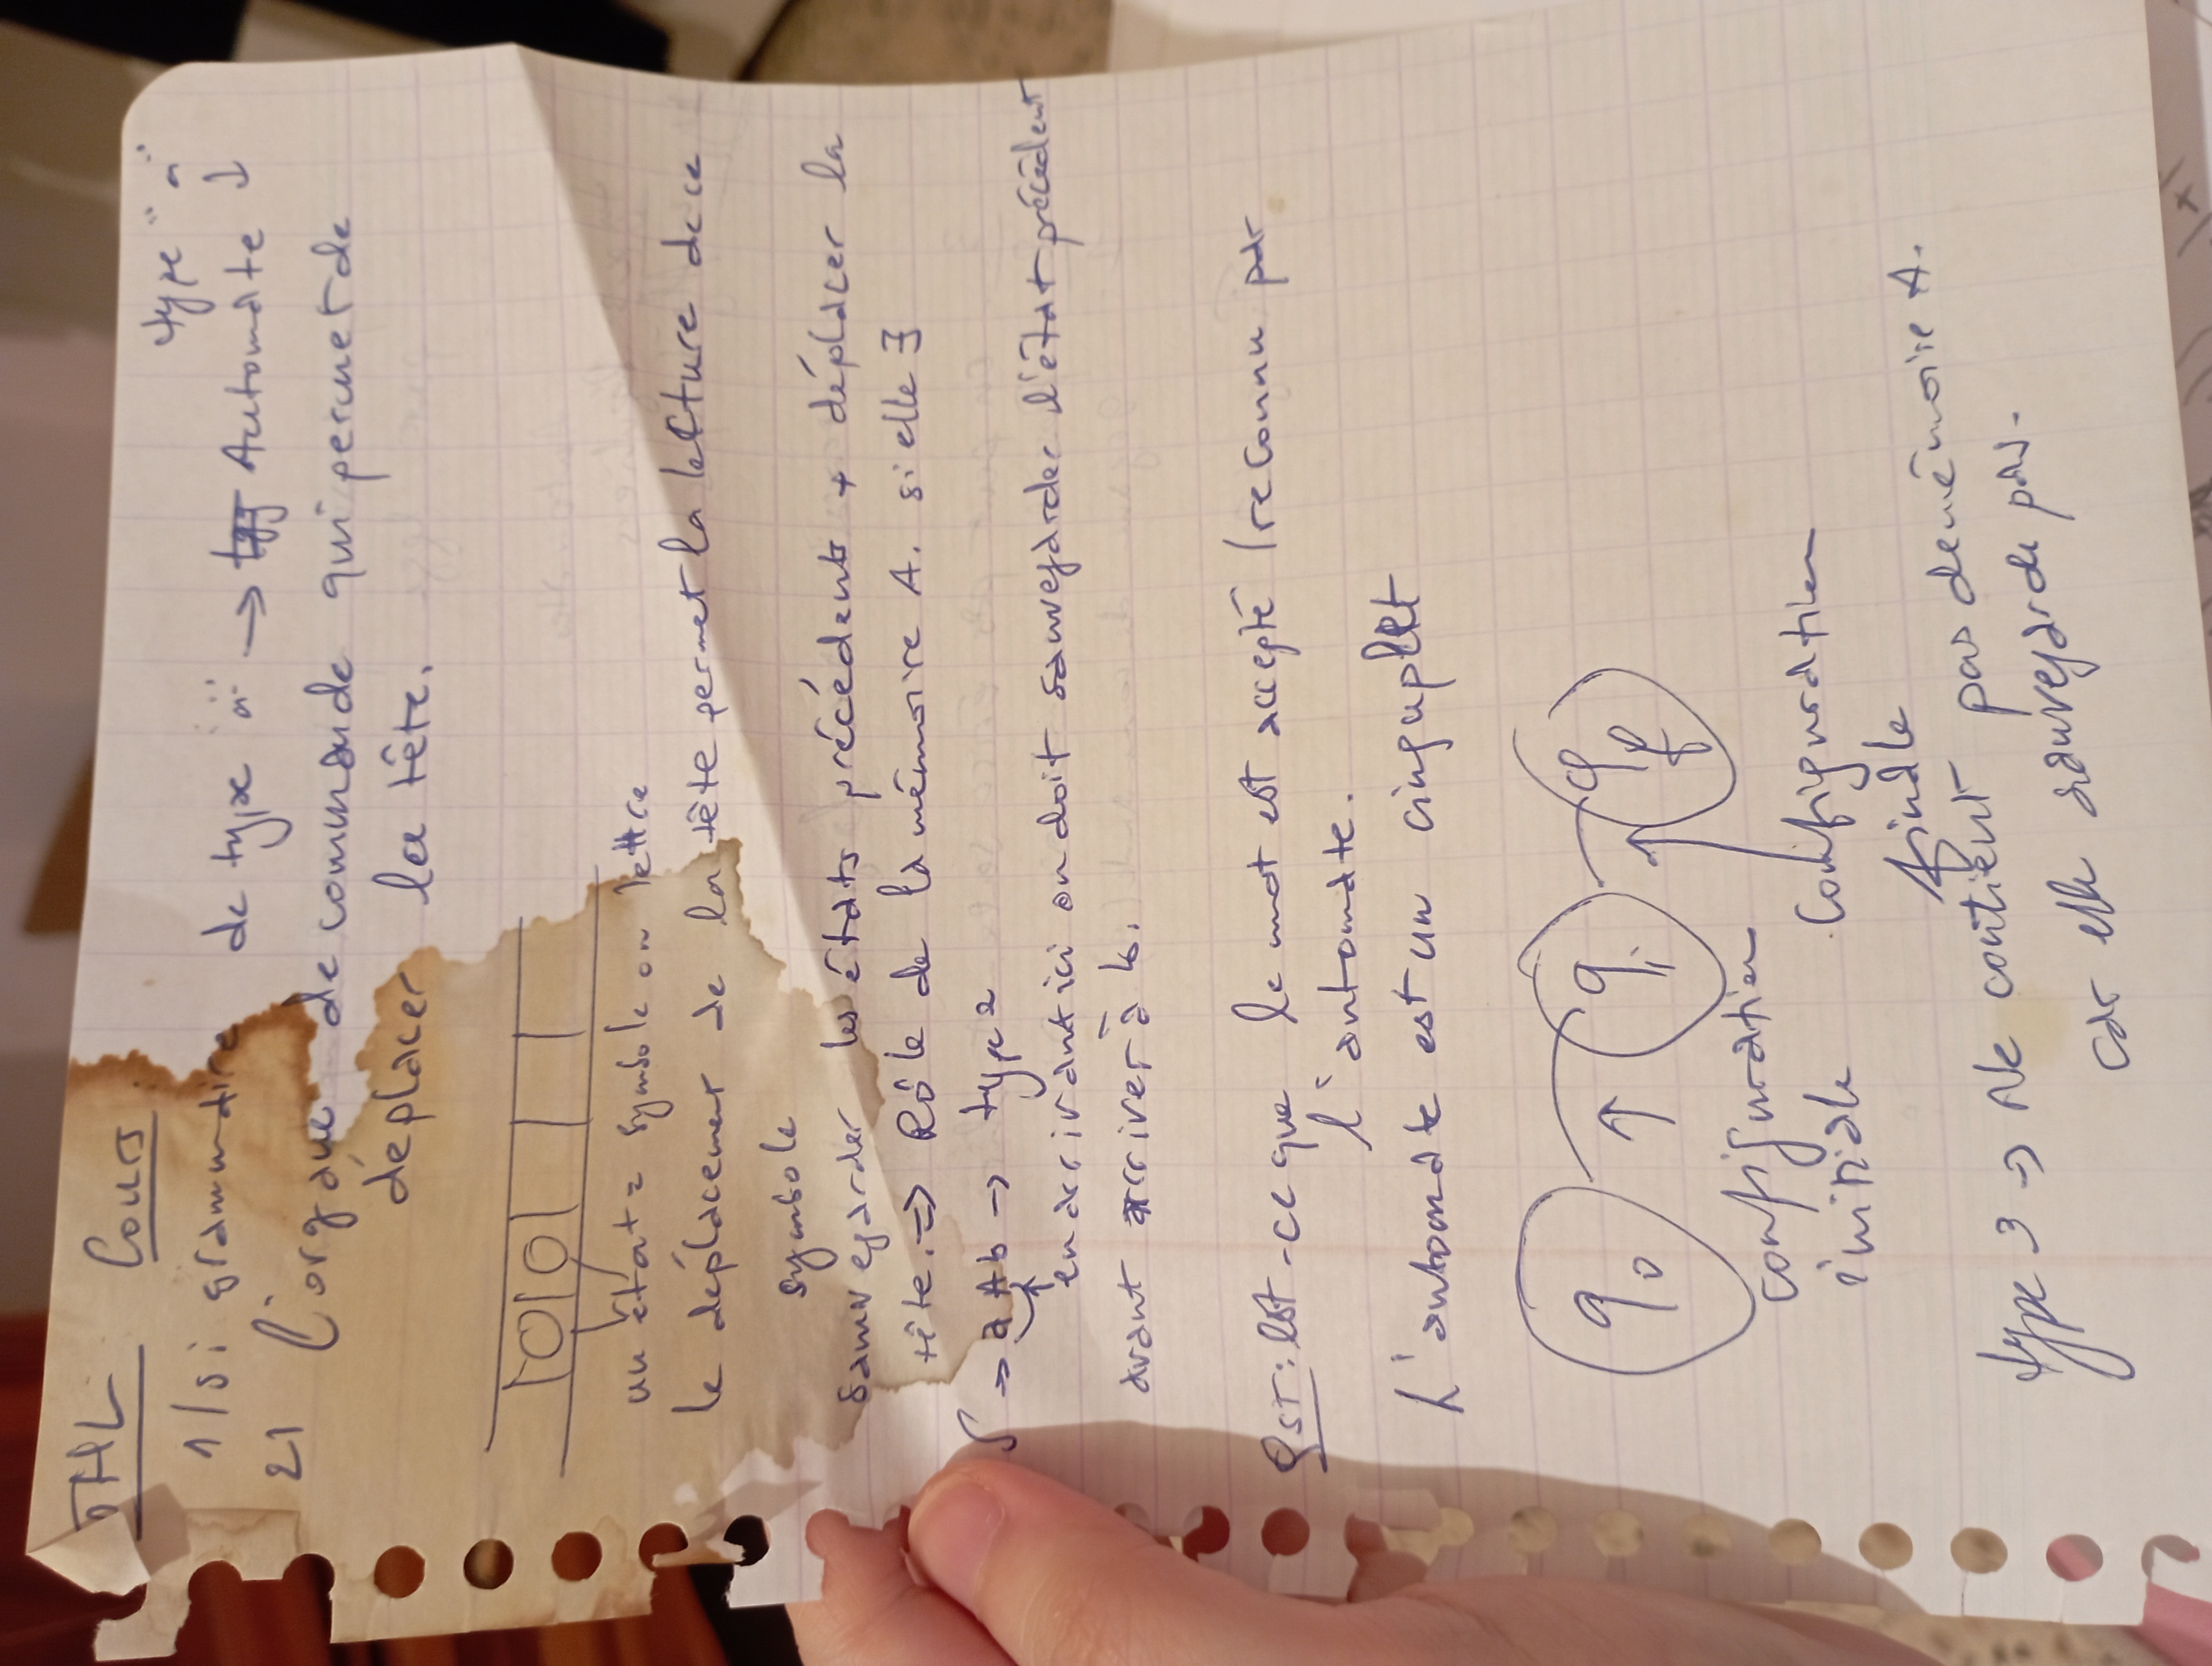 THL Cours
type "a"
1/ si grammaire de type "a" → Automate ↓
2/ l'organe de commande qui permet de
déplacer la tête.
un état = symbole ou lettre
le déplacement de la tête permet la lecture de ce
symbole
sauvegarder les états précédents + déplacer la
tête. => Rôle de la mémoire A. si elle ∃
S → aAb → type 2
en arrivant ici on doit sauvegarder l'état précédent
avant arriver à b.
Qst: Est-ce que le mot est accepté / reconnu par
l'automate.
L'automate est un cinquplet
q0 ↑ qi qf
configuration
initiale
configuration
finale
type 3 → Ne contient pas de mémoire A.
car elle sauvegarde pas.